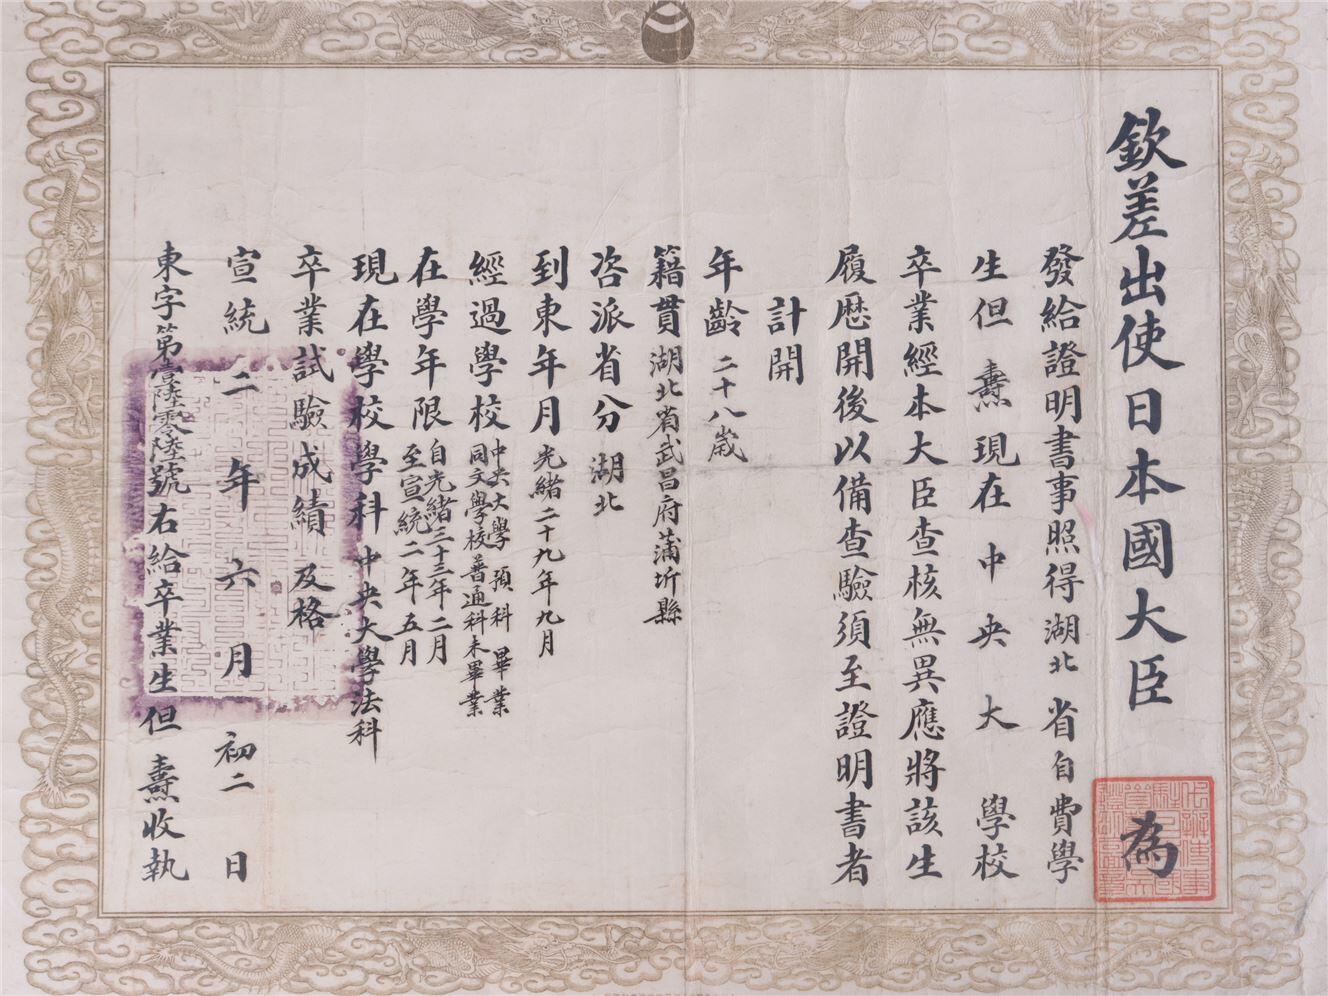 欽差出使日本國大臣 為
發給證明書事照得湖北省自費學
生但燾現在中央大學校
卒業經本大臣查核無異應將該生
履歷開後以備查驗須至證明書者
計開
年齡 二十八歲
籍貫 湖北省武昌府蒲圻縣
咨派省分 湖北
到東年月 光緒二十九年九月
經過學校 中央大學預科畢業
同文學校普通科未畢業
在學年限 自光緒三十三年二月
至宣統二年五月
現在學校學科 中央大學法科
卒業試驗成績 及格
宣統二年六月初二日
東字第壹陸零陸號右給卒業生但燾收執